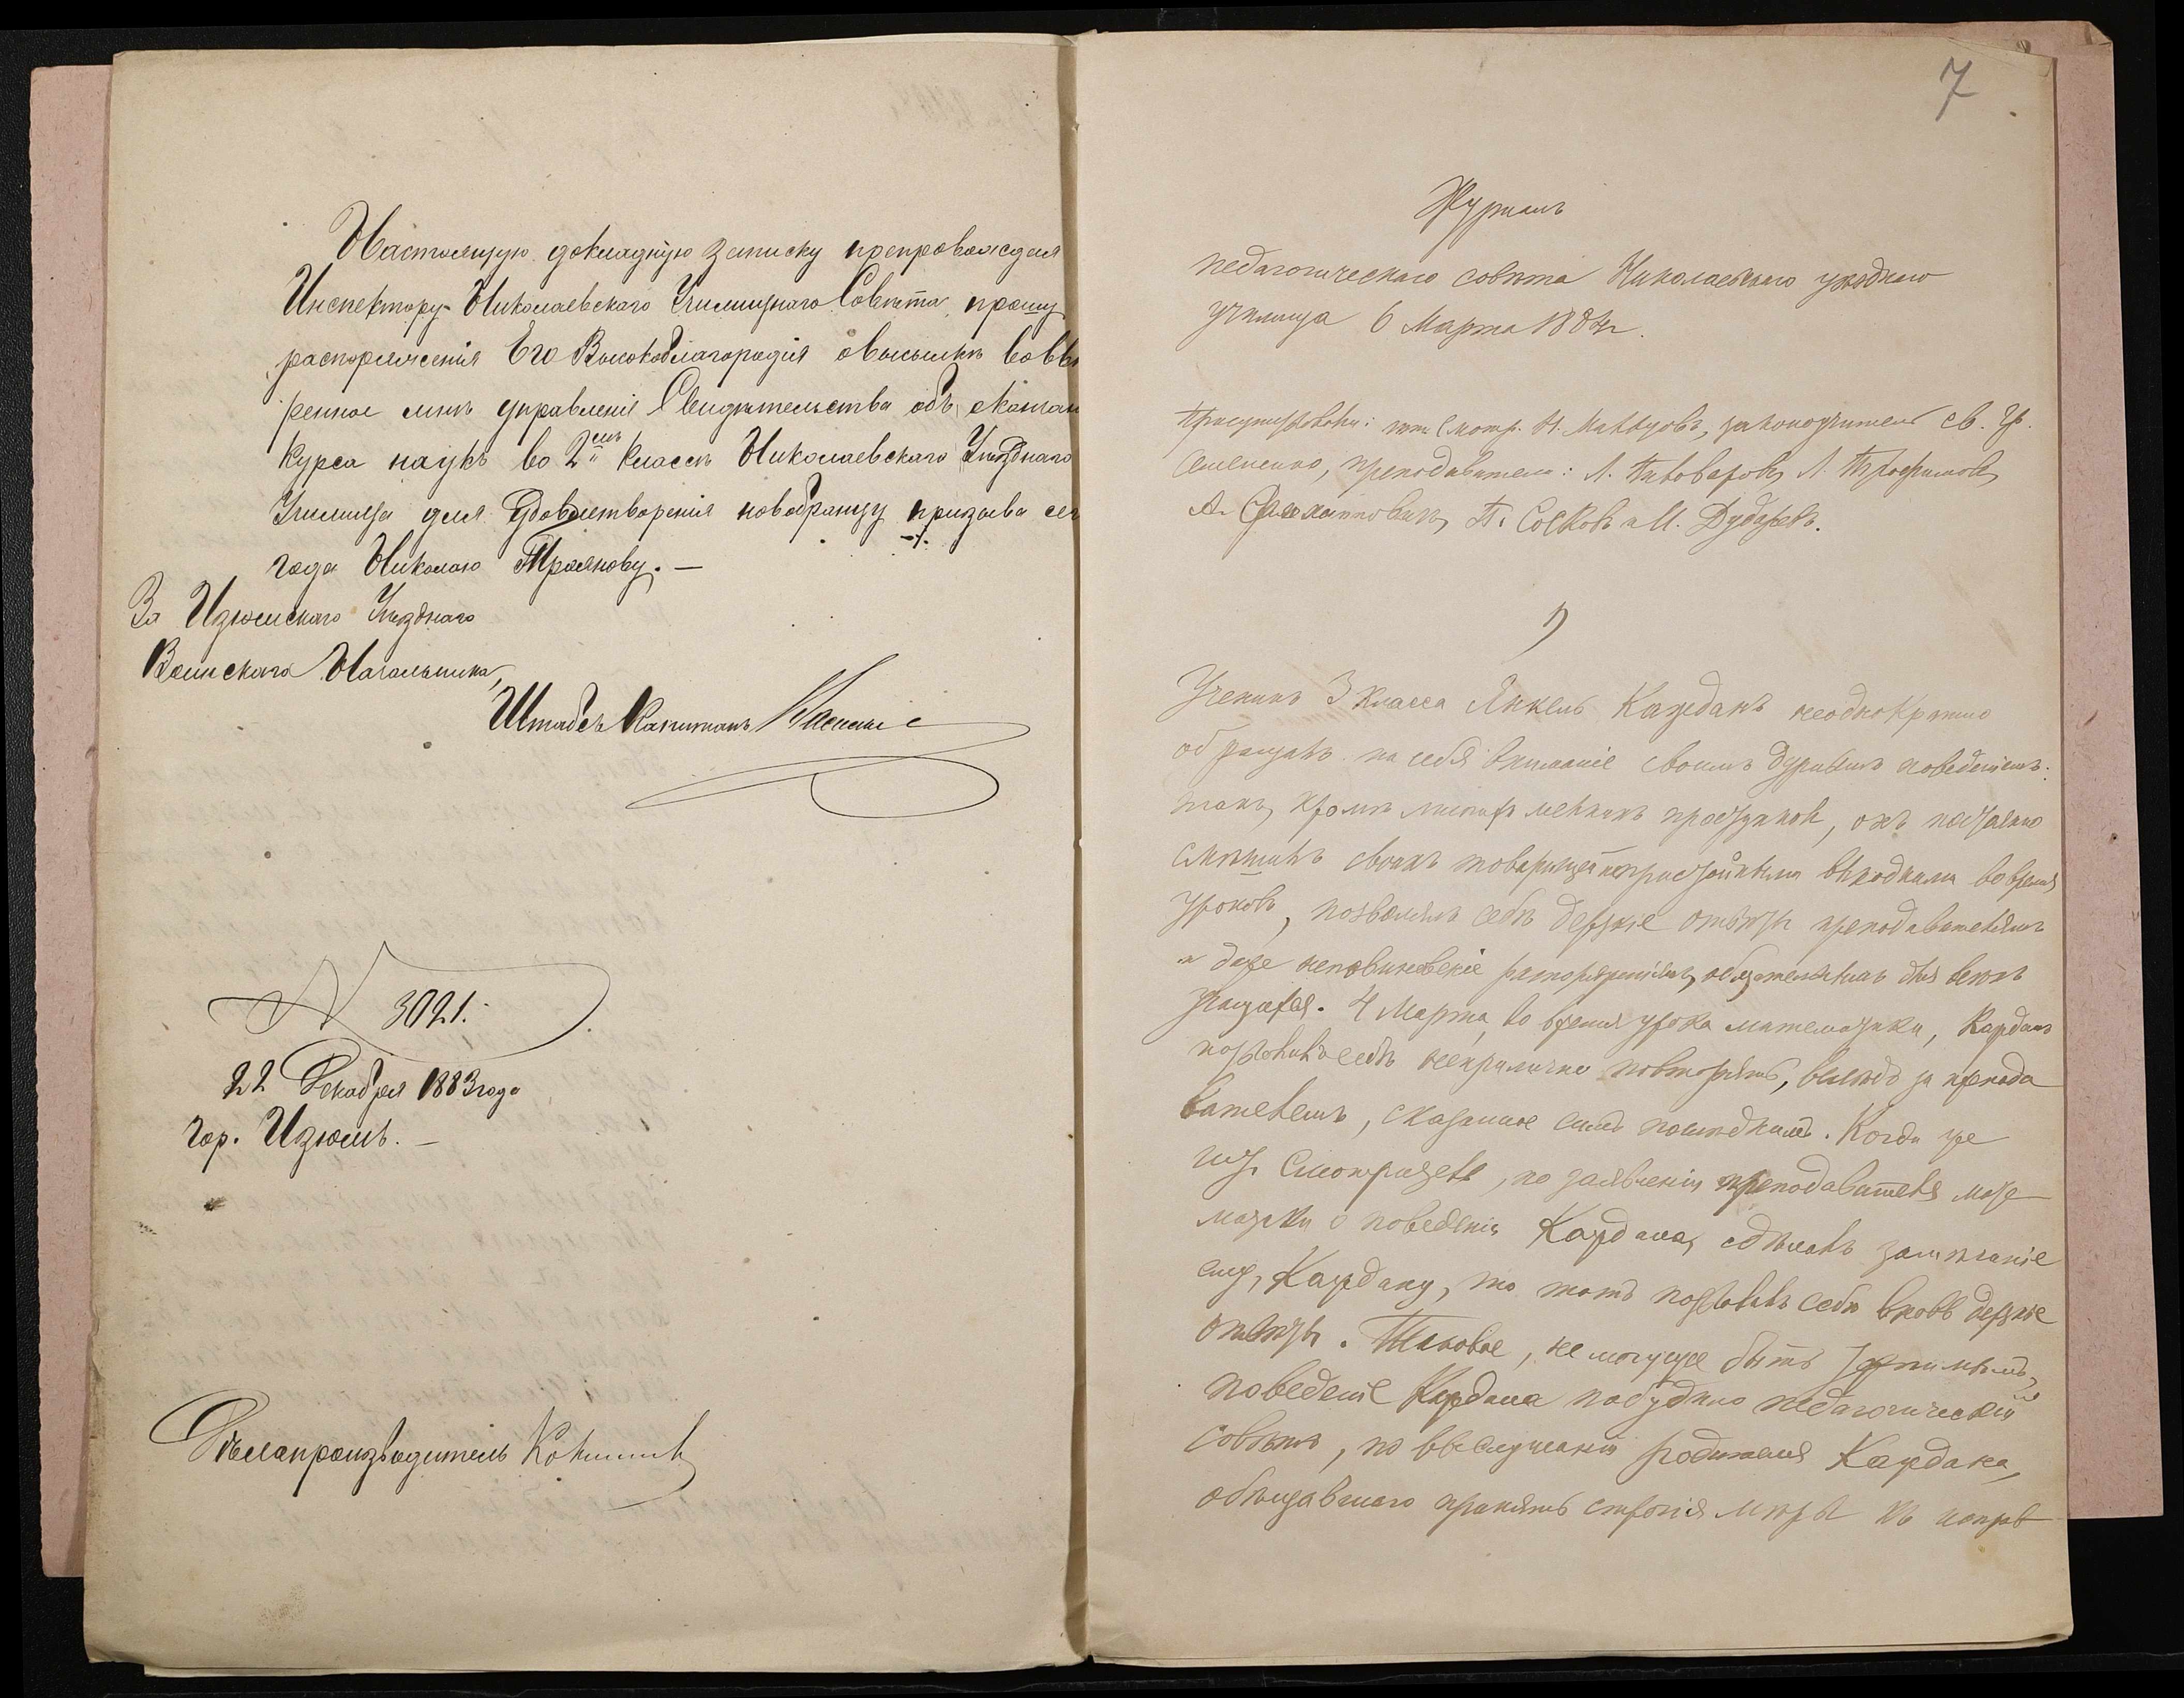 Настоящую докладную записку препровождая
Инспектору Николаевскаго Училищнаго Совѣта, прошу
распоряженія Его Высокоблагородія о высылкѣ во ввѣ
ренное мнѣ управленіе Свидѣтельства объ окончан
курса наукъ во 2мъ классѣ Николаевскаго Уѣзднаго
Училища для удовлетворенія новобранцу призыва сег
года Николаю Троянову. —
За Изюмскаго Уѣзднаго
Воинскаго Начальника,
Штабсъ Капитанъ
№ 3021.
22 Декабря 1883 года
гор. Изюмъ. —
Дѣлопроизводитель
7
Журналъ
педагогическаго совѣта Николаевскаго уѣзднаго
училища 6 Марта 1884 г.
Присутствовали: Смотр. Н. законоучитель св. Гр.
Семененко, преподаватели: Л. Пивоваровъ, Л. Трофимовъ,
А. П. Сосковъ и М. Дударевъ.
1)
Ученикъ 3 класса Янкель Кажданъ неоднократно
обращалъ на себя вниманіе своимъ дурнымъ поведеніемъ:
такъ, кромѣ мелкихъ проступковъ, онъ постоянно
смѣшилъ своихъ товарищей непристойными выходками во время
уроковъ, позволялъ себѣ дерзкіе отвѣты преподавателямъ
и даже неповиновеніе распоряженіямъ, обязательнымъ для всѣхъ
учащихся. 4 Марта, во время урока математики, Кажданъ
позволилъ себѣ неприлично повторять, вслѣдъ за препода
вателемъ, сказанное симъ послѣднимъ. Когда же
шт. Смотритель, по заявленію преподавателя мате
матики о поведеніи Каждана, сдѣлалъ замѣчаніе
ему, Каждану, то тотъ позволилъ себѣ вновь дерзкіе
отвѣты. Таковое, не могущее быть терпимымъ,
поведеніе Каждана побудило педагогическій
совѣтъ, по выслушаніи родителя Каждана,
обѣщавшаго принять строгія мѣры къ исправ